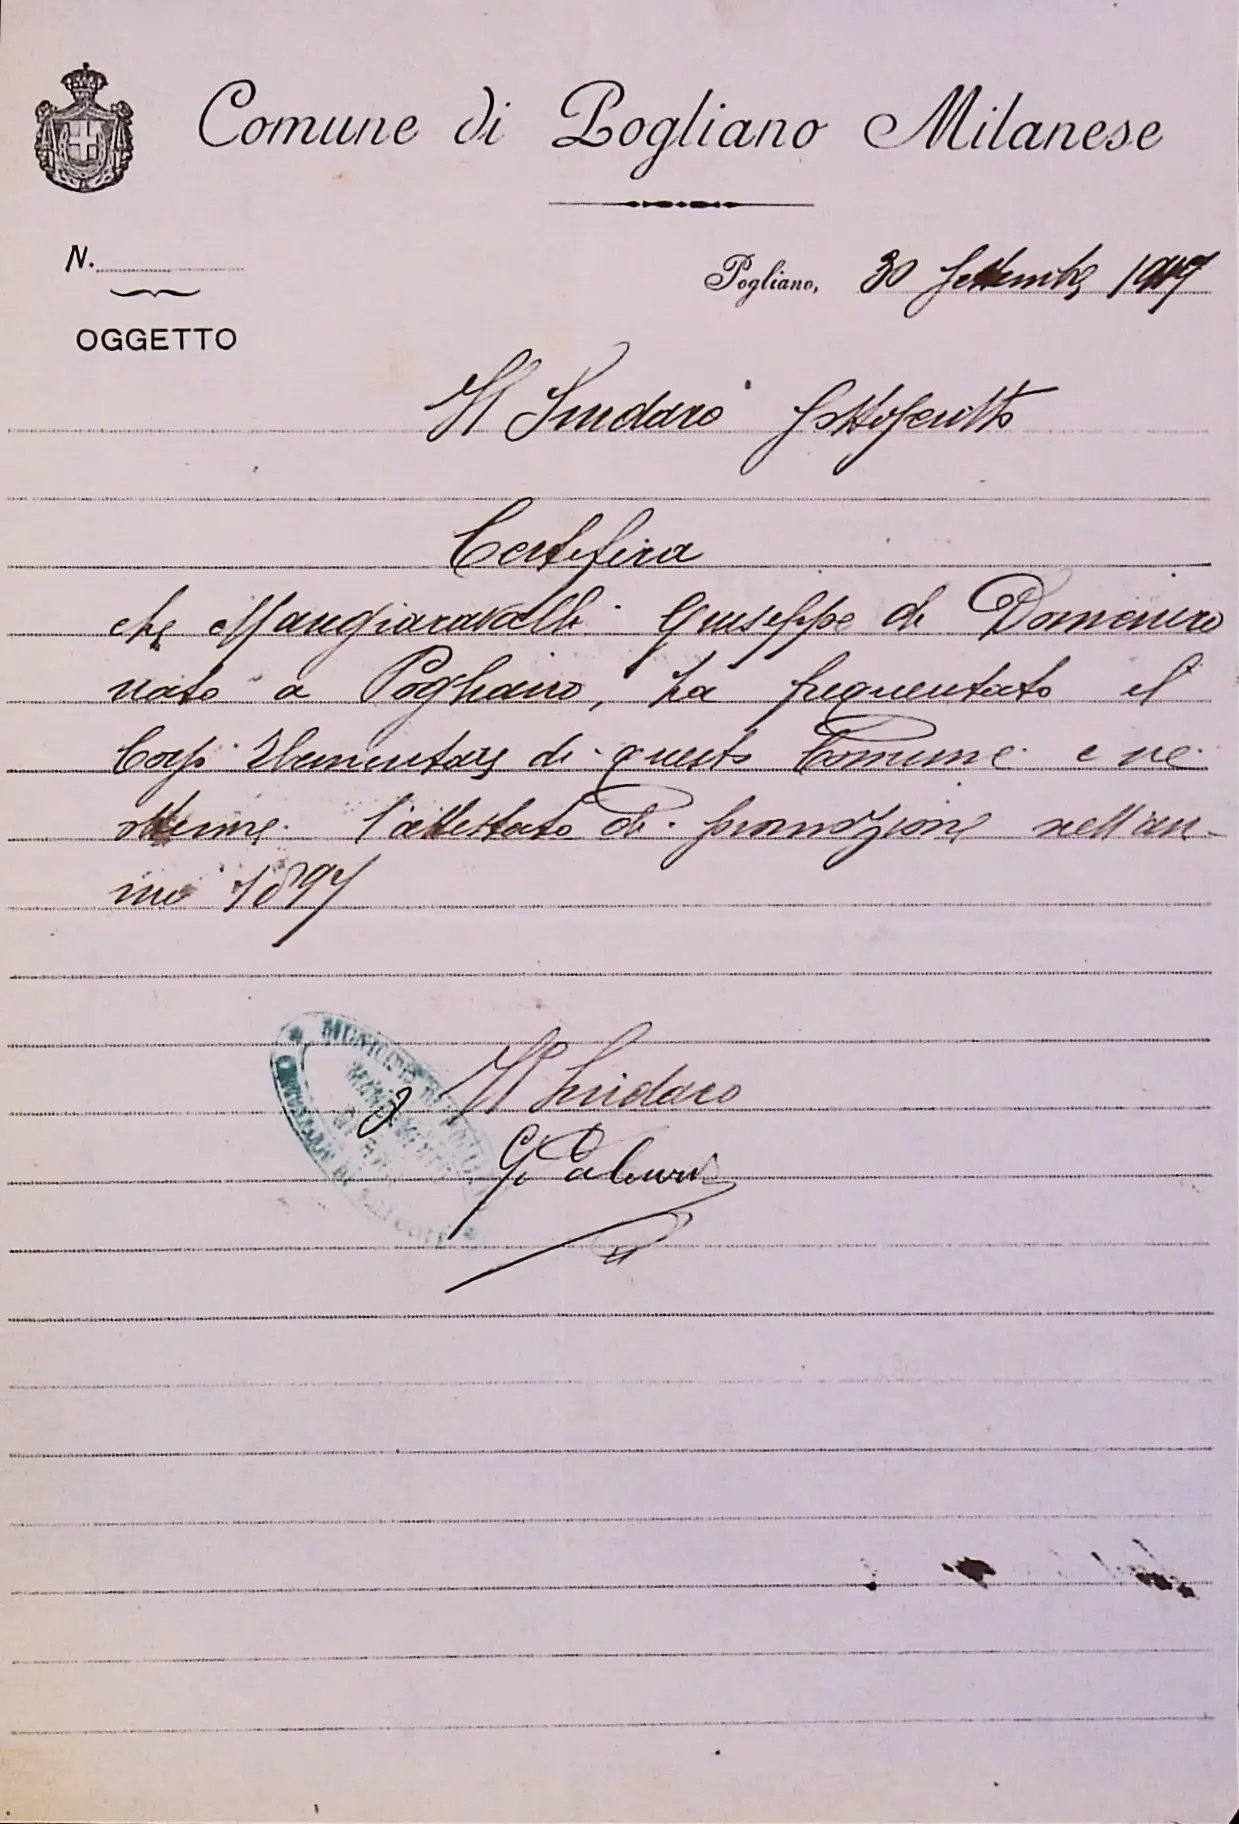 Comune di Pogliano Milanese
N.
Pogliano, 30 Settembre 1917
OGGETTO
Il Sindaco sottoscritto
Certifica
che Mangiaracalli Giuseppe di Domenico
nato a Pogliano, ha frequentato il
Corso Elementare di questo Comune e ne
ottenne l'attestato di promozione nell'an-
no 1897
Il Sindaco
G.